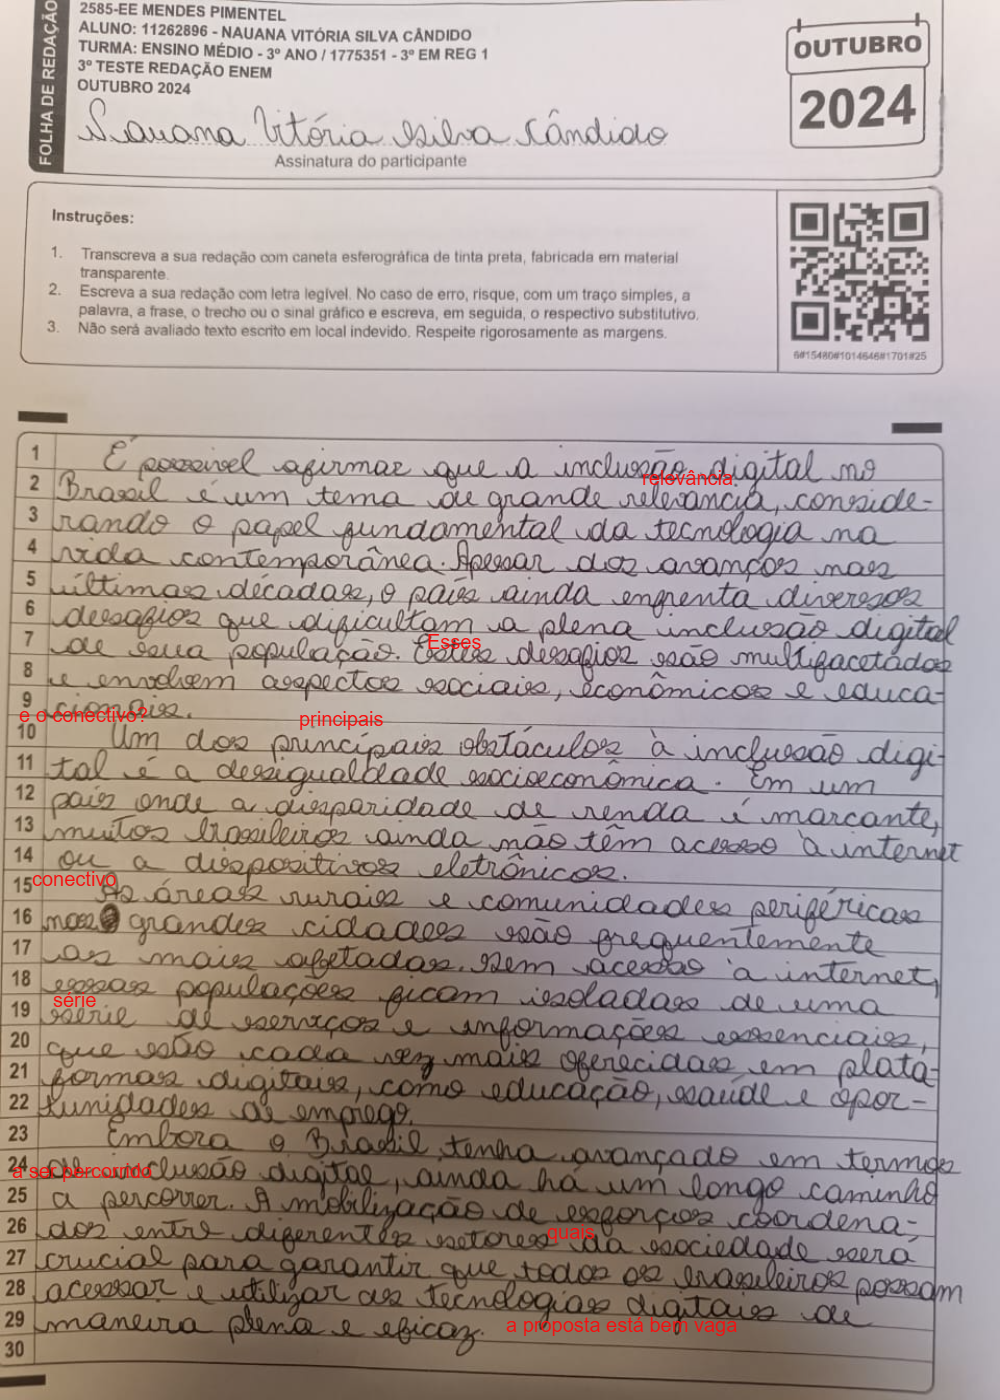 FOLHA DE REDAÇÃO
2585-EE MENDES PIMENTEL
ALUNO: 11262896 - NAUANA VITÓRIA SILVA CÂNDIDO
TURMA: ENSINO MÉDIO - 3º ANO / 1775351 - 3º EM REG 1
3º TESTE REDAÇÃO ENEM
OUTUBRO 2024
Nauana Vitória Silva Cândido
Assinatura do participante
OUTUBRO
2024
Instruções:
1. Transcreva a sua redação com caneta esferográfica de tinta preta, fabricada em material
transparente.
2. Escreva a sua redação com letra legível. No caso de erro, risque, com um traço simples, a
palavra, a frase, o trecho ou o sinal gráfico e escreva, em seguida, o respectivo substitutivo.
3. Não será avaliado texto escrito em local indevido. Respeite rigorosamente as margens.
6#15480#1014646#1701#25
1 É possivel afirmar que a inclusão digital no
relevância.
2 Brasil é um tema de grande relevancia, conside-
3 rando o papel fundamental da tecnologia na
4 vida contemporânea. Apesar dos avanços nas
5 últimas décadas, o país ainda enfrenta diversos
6 desafios que dificultam a plena inclusão digital
Esses
7 de sua população. Estes desafios são multifacetados
8 e envolvem aspectos sociais, econômicos e educa-
9 cionais.
e o conectivo? principais
10 Um dos princípais obstáculos à inclusão digi-
11 tal é a desigualdade socioeconômica. Em um
12 país onde a disparidade de renda é marcante,
13 muitos brasileiros ainda não têm acesso à internet
14 ou a dispositivos eletrônicos.
conectivo
15 As áreas rurais e comunidades periféricas
16 nas grandes cidades são frequentemente
17 as mais afetadas. Sem acesso à internet,
18 essas populações ficam isoladas de uma
série
19 série de serviços e informações essenciais,
20 que estão cada vez mais oferecidas em plata-
21 formas digitais, como educação, saúde e opor-
22 tunidades de emprego.
23 Embora o Brasil tenha avançado em termos
a ser percorrido
24 de inclusão digital, ainda há um longo caminho
25 a percorrer. A mobilização de esforços coordena-
26 dos entre diferentes setores da sociedade será
quais
27 crucial para garantir que todos os brasileiros possam
28 acessar e utilizar as tecnologias digitais de
29 maneira plena e eficaz. a proposta está bem vaga
30